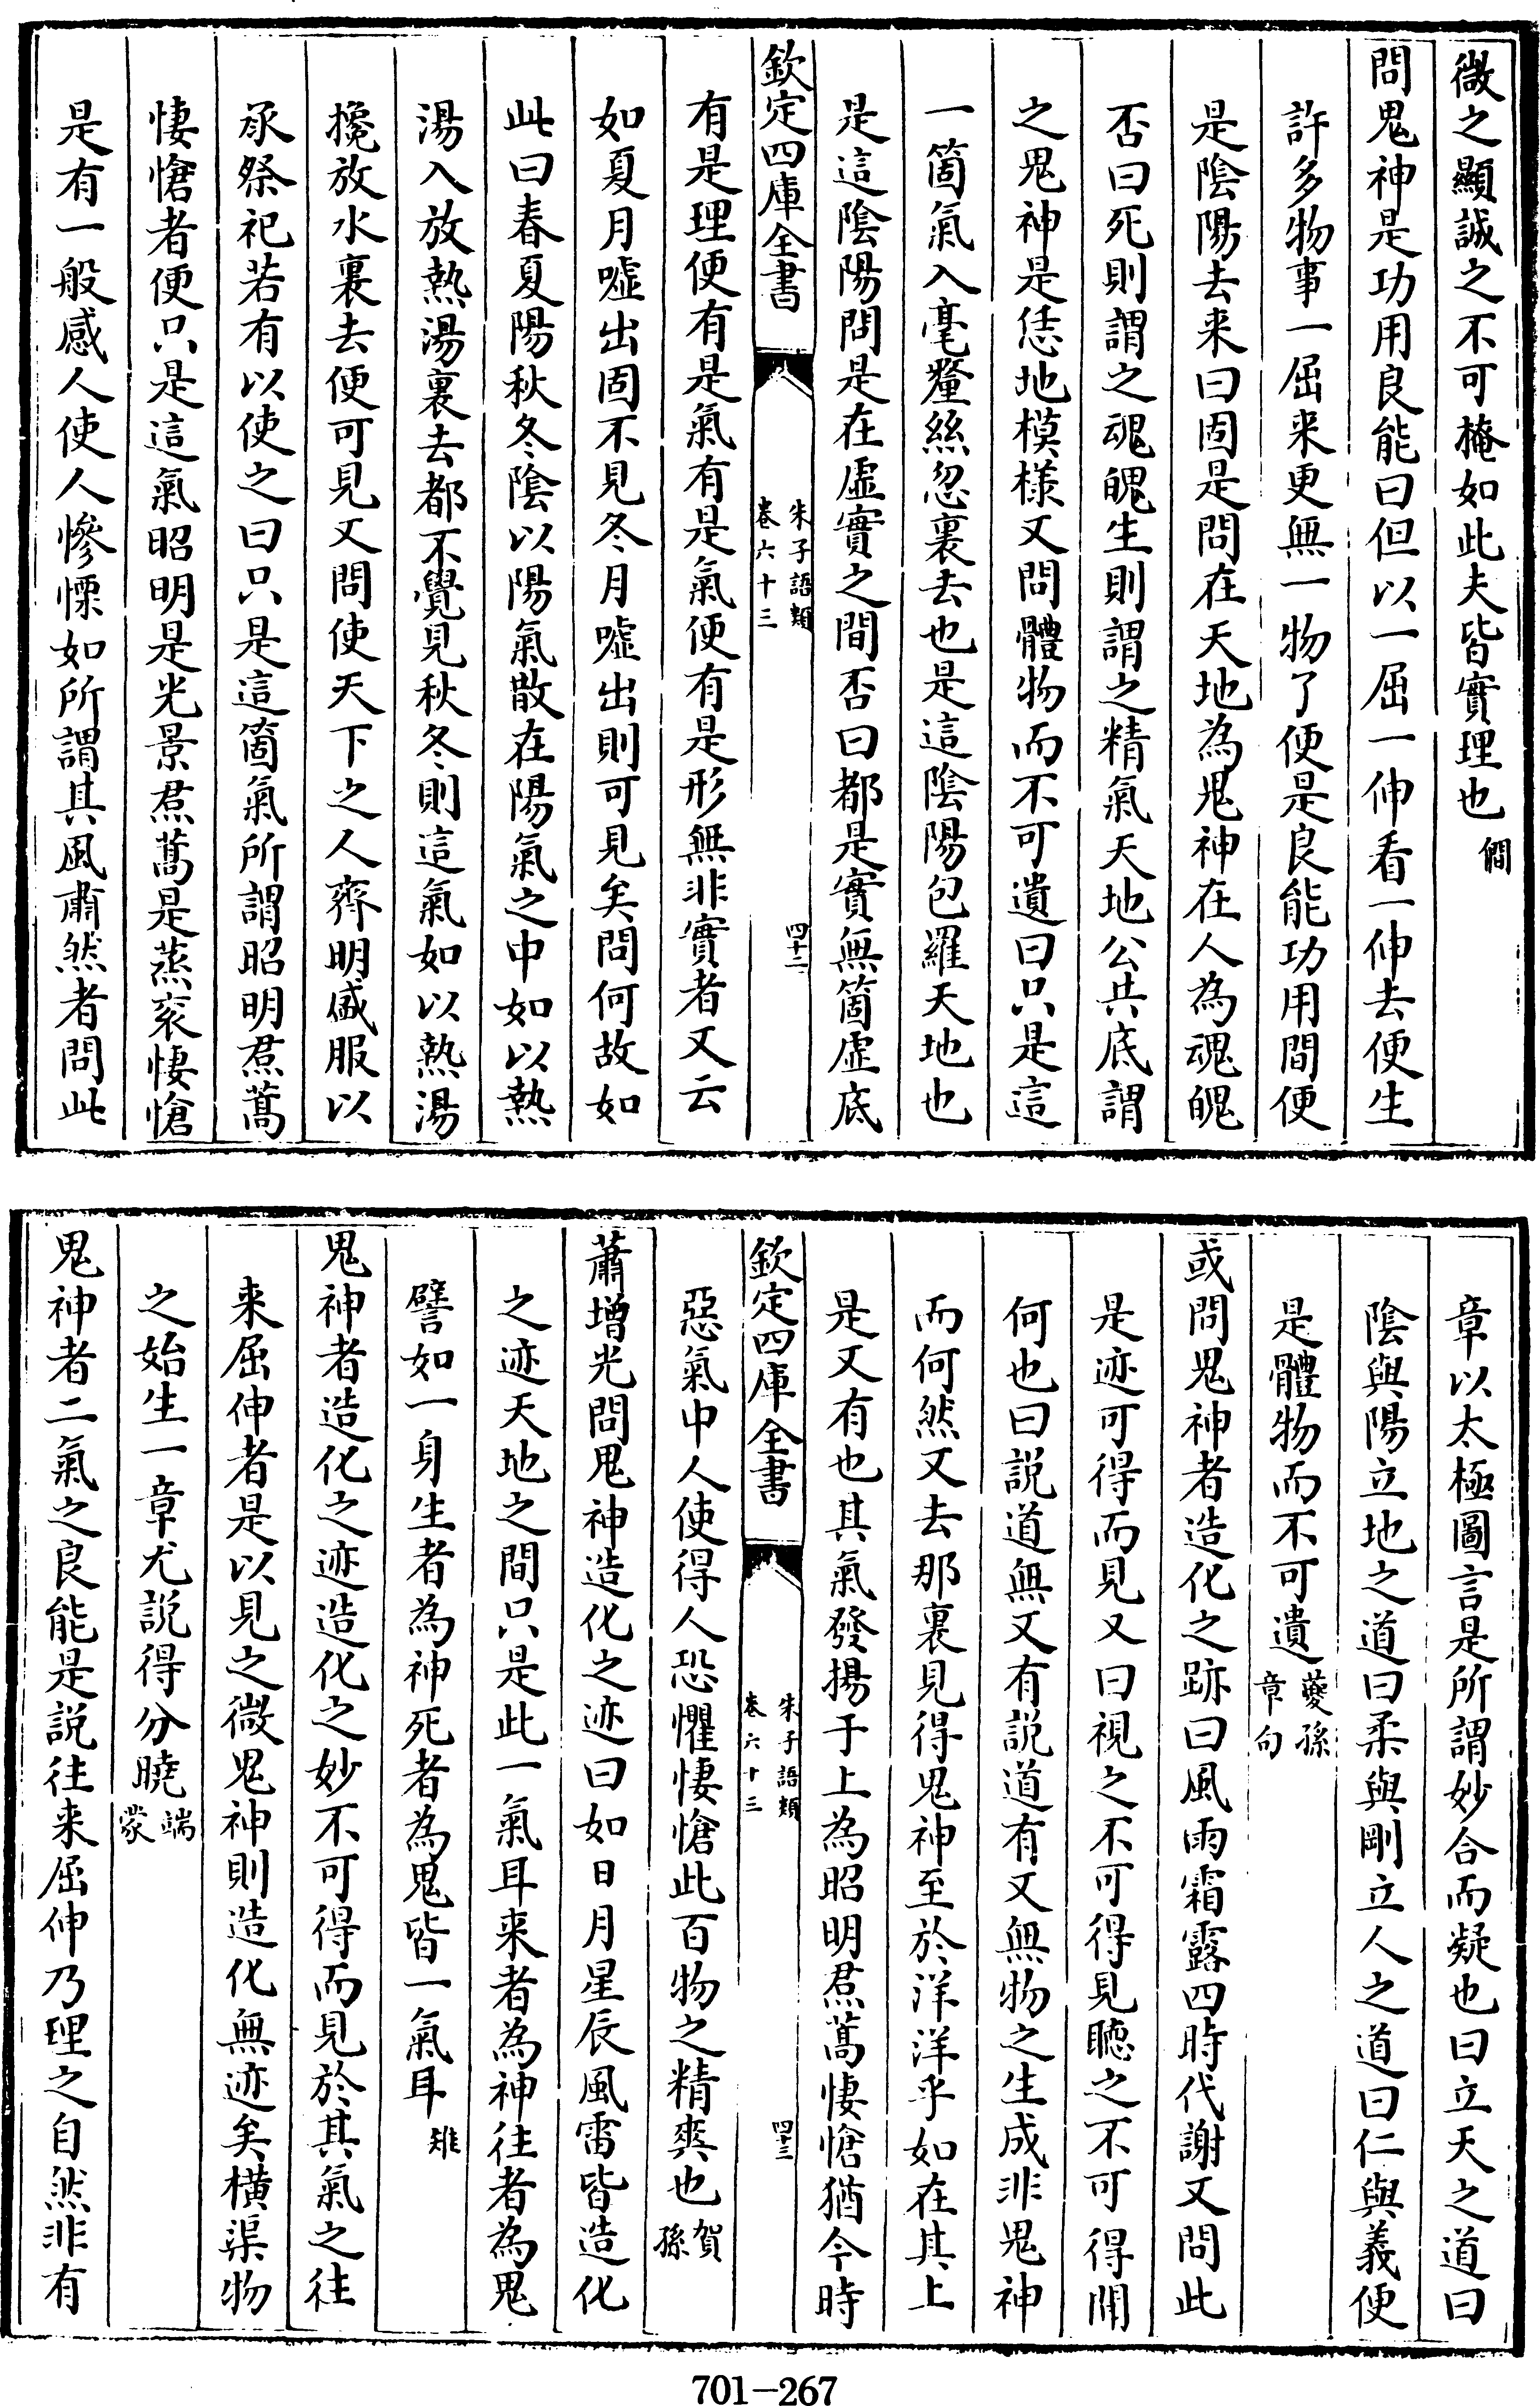 微之顯誠之不可掩如此夫皆實理也 僴
問鬼神是功用良能曰但以一屈一伸看一伸去便生
許多物事一屈来更無一物了便是良能功用問便
是陰陽去来曰固是問在天地為鬼神在人為魂魄
否曰死則謂之魂魄生則謂之精氣天地公共底謂
之鬼神是恁地模樣又問體物而不可遺曰只是這
一箇氣入毫釐絲忽裏去也是這陰陽包羅天地也
是這陰陽問是在虛實之間否曰都是實無箇虛底
欽定四庫全書
朱子語類
卷六十三
四十二
有是理便有是氣有是氣便有是形無非實者又云
如夏月噓出固不見冬月噓出則可見矣問何故如
此曰春夏陽秋冬陰以陽氣散在陽氣之中如以熱
湯入放熱湯裏去都不覺見秋冬則這氣如以熱湯
攙放水裏去便可見又問使天下之人齊明盛服以
承祭祀若有以使之曰只是這箇氣所謂昭明焄蒿
悽愴者便只是這氣昭明是光景焄蒿是蒸衮悽愴
是有一般感人使人慘慄如所謂其風肅然者問此
章以太極圖言是所謂妙合而凝也曰立天之道曰
陰與陽立地之道曰柔與剛立人之道曰仁與義便
是體物而不可遺 夔孫
章句
或問鬼神者造化之跡曰風雨霜露四時代謝又問此
是迹可得而見又曰視之不可得見聽之不可得聞
何也曰説道無又有説道有又無物之生成非鬼神
而何然又去那裏見得鬼神至於洋洋乎如在其上
是又有也其氣發揚于上為昭明焄蒿悽愴猶今時
欽定四庫全書
朱子語類
卷六十三
四十三
惡氣中人使得人恐懼悽愴此百物之精爽也 賀孫
蕭增光問鬼神造化之迹曰如日月星辰風雷皆造化
之迹天地之間只是此一氣耳来者為神往者為鬼
譬如一身生者為神死者為鬼皆一氣耳 雉
鬼神者造化之迹造化之妙不可得而見於其氣之往
来屈伸者是以見之微鬼神則造化無迹矣橫渠物
之始生一章尤說得分曉 端蒙
鬼神者二氣之良能是說往来屈伸乃理之自然非有
701-267